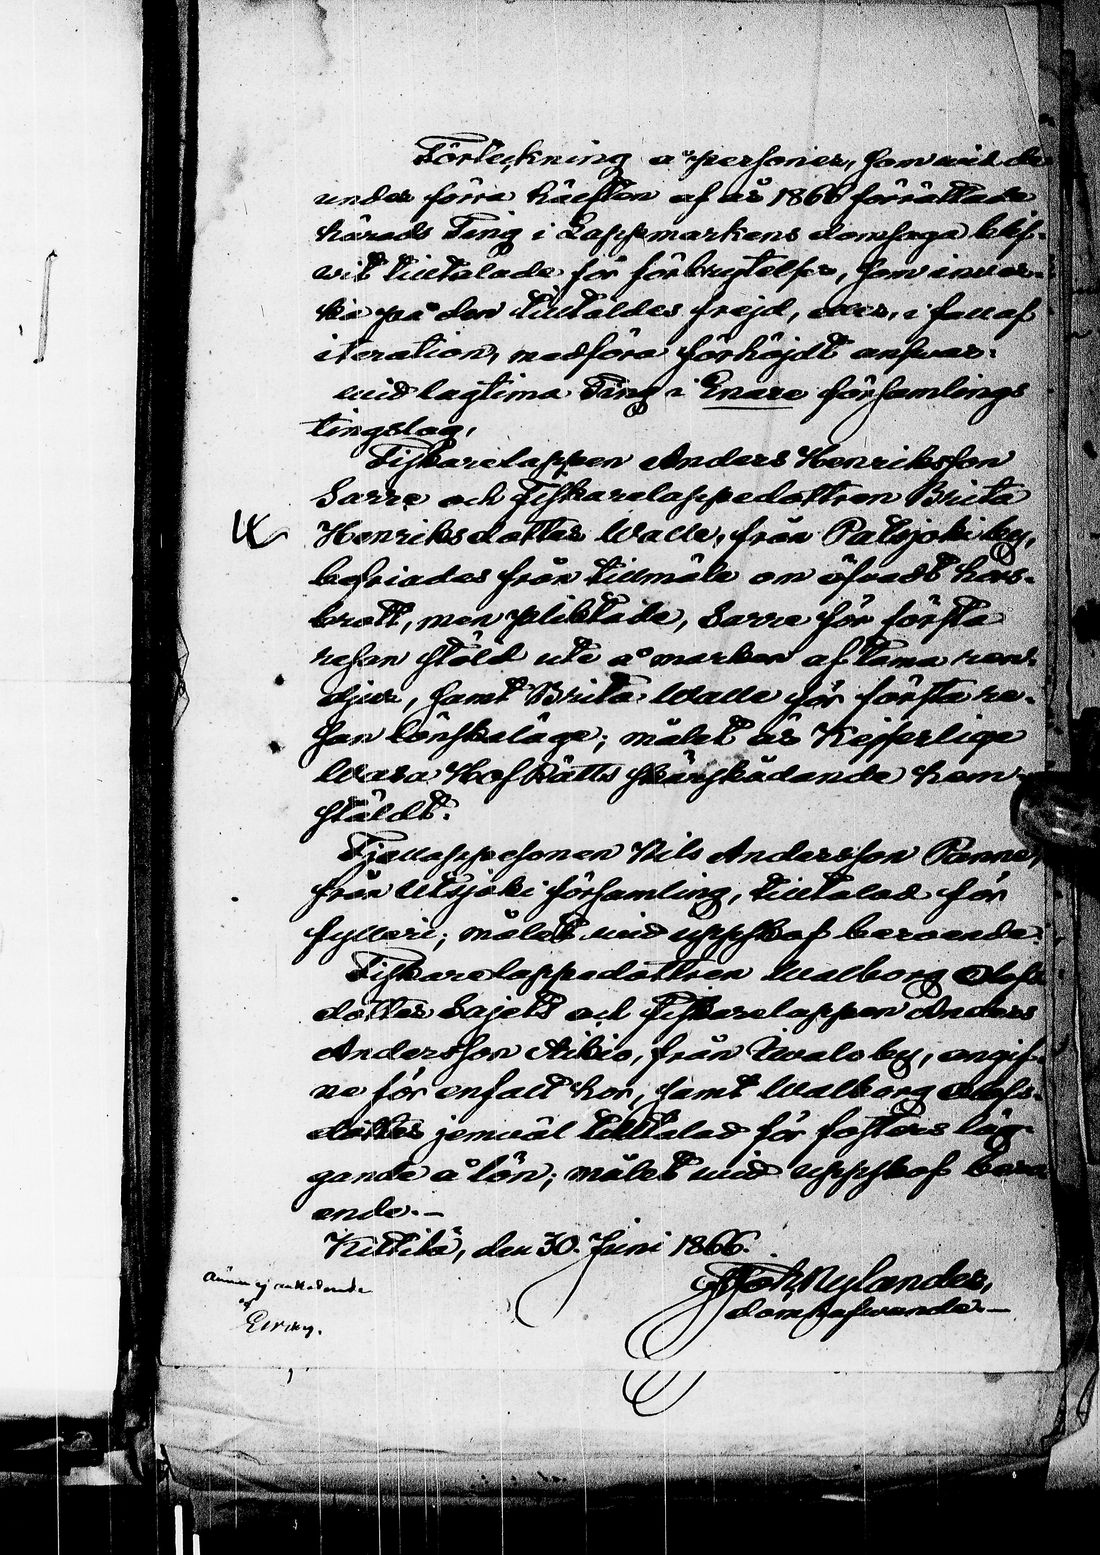 Förteckning å personer, som vid de
under förra hälften af år 1866 förrättade
härads Ting i Lappmarkens domsaga blif-
vit tilltalade för förbrytelser, som inver-
ka på den tilltaldes frejd, eller, i fall af
iteration, medföra förhöjdt answar.
vid lagtima Ting i Enare församlings
tingslag,
Fiskarelappen Anders Henriksson
Sarre och Fiskarelappedottren Brita
Henriksdotter Walle, från Patsjoki by,
befriades från tillmäle om öfvadt hors-
brott, men pliktade, Sarre för första
resan stöld ute å marken af tama ren-
djur, samt Brita Walle för första re-
san lönskaläge; målet är Kejserlige
Wasa HofRätts skärskådande hem-
stäldt.
Fjellappesonen Nils Andersson Panne,
från Utsjoki församling, tilltalad för
fylleri; målet vid uppskof beroende.
Fiskarelappedottren Walborg Olofs
dotter Sajets och Fiskarelappen Anders
Andersson Aikio, från Ivalo by, angif-
ne för enfalt hor, samt Walborg Olofs-
dotter jemväl tilltalad för fosters läg-
gande å lön; målet vid uppskof bero
ende.—
Kittilä, den 30 Juni 1866.
Joh. Nylander,
domhafvande.—
af